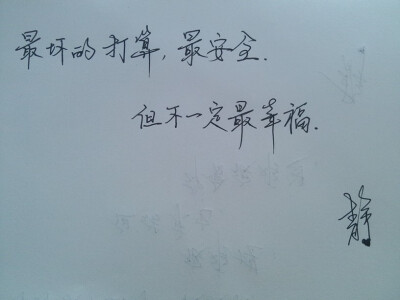 最坏的打算，最安全.
但不一定最幸福.
静